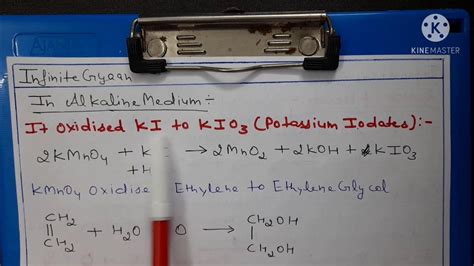 KINEMASTER
InfiniteGyaan
In Alkaline Medium:-
It oxidised KI to KIO3 (Potassium Iodates):-
2KMnO4 + K → 2MnO2 + 2KOH + KIO3
+ H
KMnO4 Oxidise Ethylene to Ethylene Glycol
CH2 CH2OH
|| + H2O O → |
CH2 CH2OH